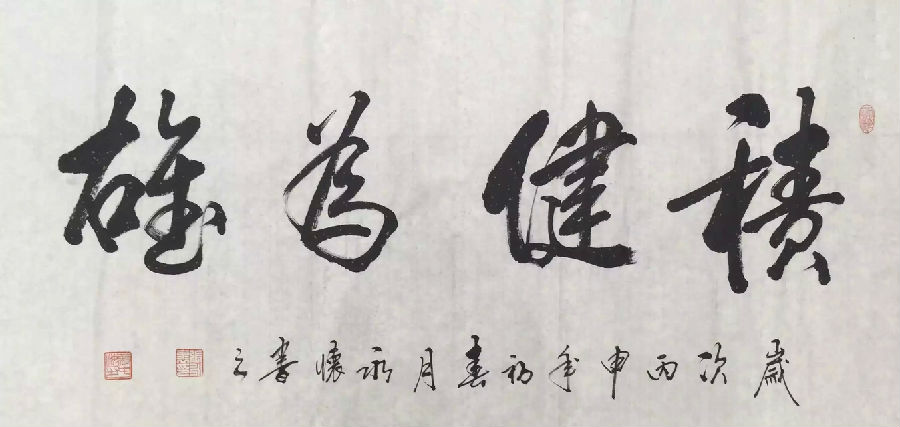 積健為雄
歲次丙申年初春月永懷書之